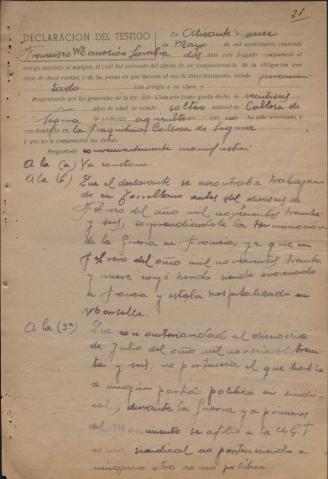 21
DECLARACION DEL TESTIGO
En Alicante a once
Francisco Manresa
de Mayo de mil novecientos cuarenta
ante este Juzgado compareció el
testigo anotado al margen, el cual fue enterado del objeto de su comparecencia, de la obligación que
tiene de decir verdad, y de las penas en que incurre el reo de falso testimonio, siendo juramen-
tado con arreglo a su clase, y
Preguntado por las generales de la ley, dijo: Llamarse como queda dicho, de
años de edad, de estado soltero natural de Callosa de
Segura de profesión agricultor que no ha sido procesado, y
con domicilio en la Callosa de Segura
y que no le comprenden las demás.
Preguntado convenientemente manifiesta:
A la (a) Ya consta.
A la (b) Que el declarante se encontraba trabajan-
do en antes del dieciseis de
Febrero del año mil novecientos treinta
y seis, sorprendiendole la terminación
de la Guerra en Francia, ya que en
Enero del año mil novecientos treinta
y nueve cayó herido siendo evacuado
a Francia y estaba hospitalizado en
Marsella.
A la (2ª) Que con anterioridad al dieciocho
de Julio del año mil novecientos trein-
ta y seis, no pertenecia el que habla
a ningún partido politico ni sindi-
cal, durante la Guerra y a primeros
del Movimiento se afilió a la U.G.T.
como sindical no perteneciendo a
ninguno otro como politico